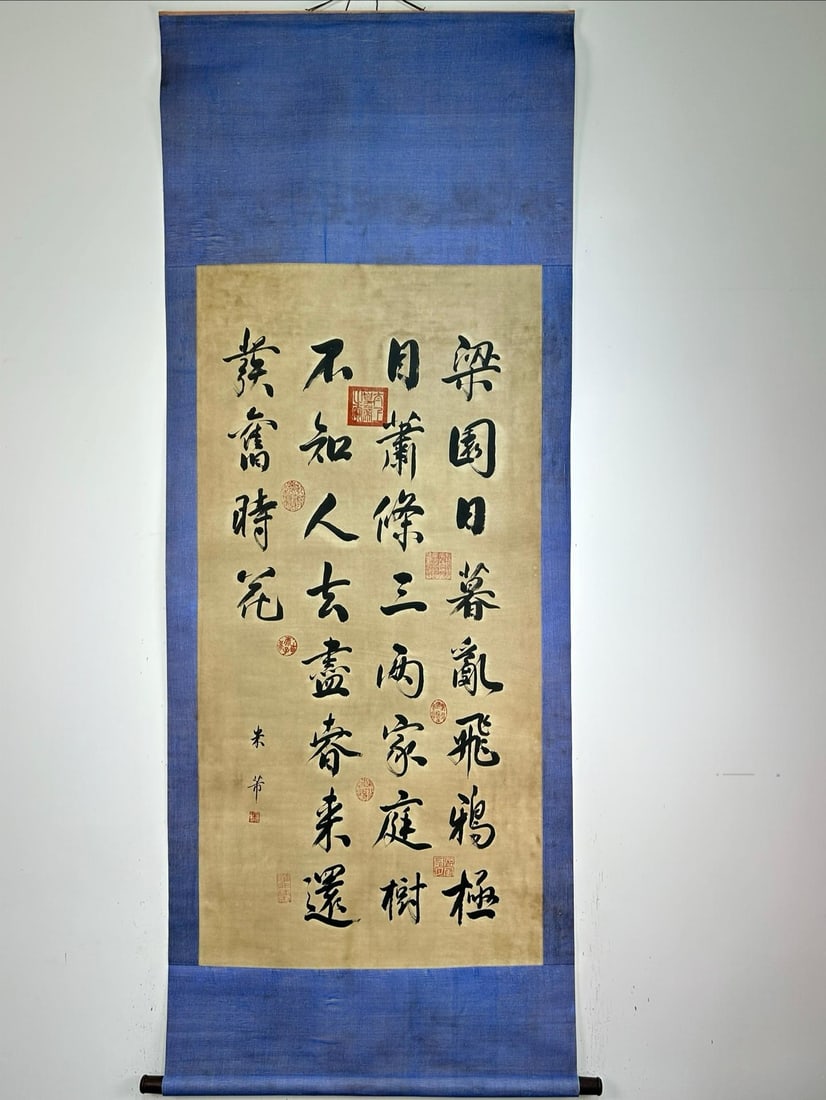 梁園日暮亂飛鴉極
目蕭條三兩家庭樹
不知人去盡春来還
發舊時花
米芾